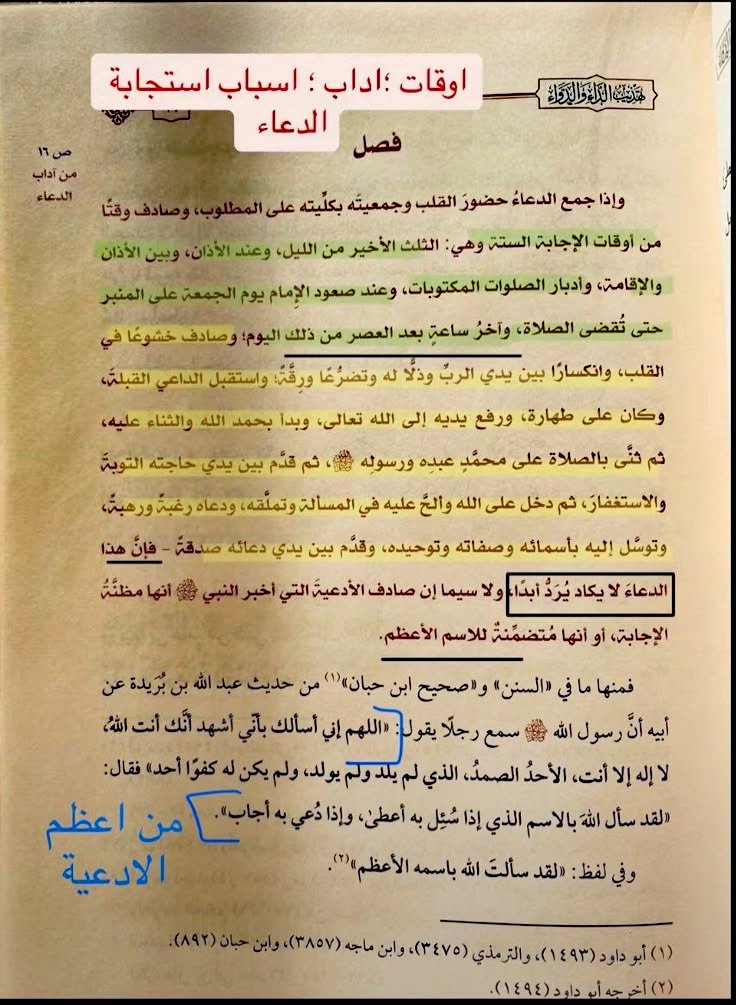 اوقات ؛اداب ؛ اسباب استجابة
الدعاء
تهذيب الداء والدواء
فصل
ص ١٦
من آداب
الدعاء
وإذا جمع الدعاءُ حضورَ القلب وجمعيتَه بكلِّيته على المطلوب، وصادف وقتًا
من أوقات الإجابة الستة وهي: الثلث الأخير من الليل، وعند الأذان، وبين الأذان
والإقامة، وأدبار الصلوات المكتوبات، وعند صعود الإمام يوم الجمعة على المنبر
حتى تُقضى الصلاة، وآخرُ ساعةٍ بعد العصر من ذلك اليوم؛ وصادف خشوعًا في
القلب، وانكسارًا بين يدي الربِّ وذلًّا له وتضرُّعًا ورِقَّةً؛ واستقبل الداعي القبلةَ،
وكان على طهارة، ورفع يديه إلى الله تعالى، وبدأ بحمد الله والثناء عليه،
ثم ثنَّى بالصلاة على محمَّدٍ عبدِه ورسولِه ﷺ، ثم قدَّم بين يدي حاجته التوبةَ
والاستغفارَ، ثم دخل على الله وألحَّ عليه في المسألة وتملَّقه، ودعاه رغبةً ورهبةً،
وتوسَّل إليه بأسمائه وصفاته وتوحيده، وقدَّم بين يدي دعائه صدقةً – فإنَّ هذا
الدعاءَ لا يكاد يُرَدُّ أبدًا، ولا سيما إن صادف الأدعيةَ التي أخبر النبي ﷺ أنها مظنَّةُ
الإجابة، أو أنها مُتضمِّنةٌ للاسم الأعظم.
فمنها ما في «السنن» و«صحيح ابن حبان»(١) من حديث عبد الله بن بُرَيدة عن
أبيه أنَّ رسول الله ﷺ سمع رجلًا يقول: «اللهم إني أسألك بأنّي أشهد أنَّك أنت اللهُ،
لا إله إلا أنت، الأحدُ الصمدُ، الذي لم يلد ولم يولد، ولم يكن له كفوًا أحد» فقال:
«لقد سأل اللهَ بالاسم الذي إذا سُئِل به أعطى، وإذا دُعي به أجاب».
من اعظم
الادعية
وفي لفظ: «لقد سألتَ الله باسمه الأعظم»(٢).
(١) أبو داود (١٤٩٣)، والترمذي (٣٤٧٥)، وابن ماجه (٣٨٥٧)، وابن حبان (٨٩٢).
(٢) أخرجه أبو داود (١٤٩٤).